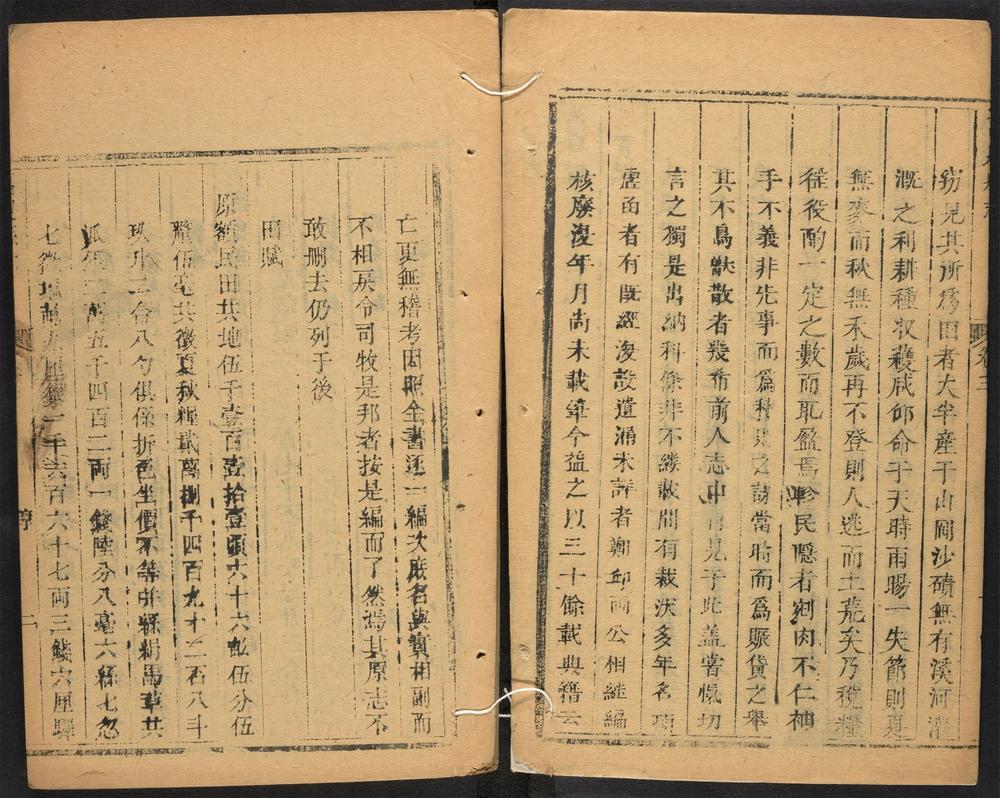 窃見其所爲田者大半產于山岡沙磧無有溪河灌
溉之利耕種收穫咸仰命于天時雨暘一失節則夏
無麥而秋無禾歲再不登則人逃而土荒矣乃稅糧
徭役酌一定之數而取盈焉軫民隱者剜肉不仁袖
手不義非先事而爲之計當時而爲賑貸之舉
其不鳥獸散者幾希前人志中見于此蓋嘗慨切
言之獨是出納科條非不縷載間有裁汰多年名項
虛存者有既經復設遺漏未詳者鄭邱兩公相繼編
核廢復年月尚未載筆今益之以三十餘載典籍云
亡更無稽考因照全書逐一編次庶名與實相副而
不相戾令司牧是邦者按是編而了然焉其原志不
敢刪去仍列于後
田賦
原額民田共地伍千壹百壹拾壹頃六十六畝伍分伍
釐伍毫共徵夏秋糧貳萬捌千四百九十二石八斗
玖升二合八勺俱係折色坐價不等併絲綿馬草共
派銀萬五千四百二兩一錢陸分八毫六絲七忽
七微地畝九厘銀二千六百六十七兩三錢六厘驛